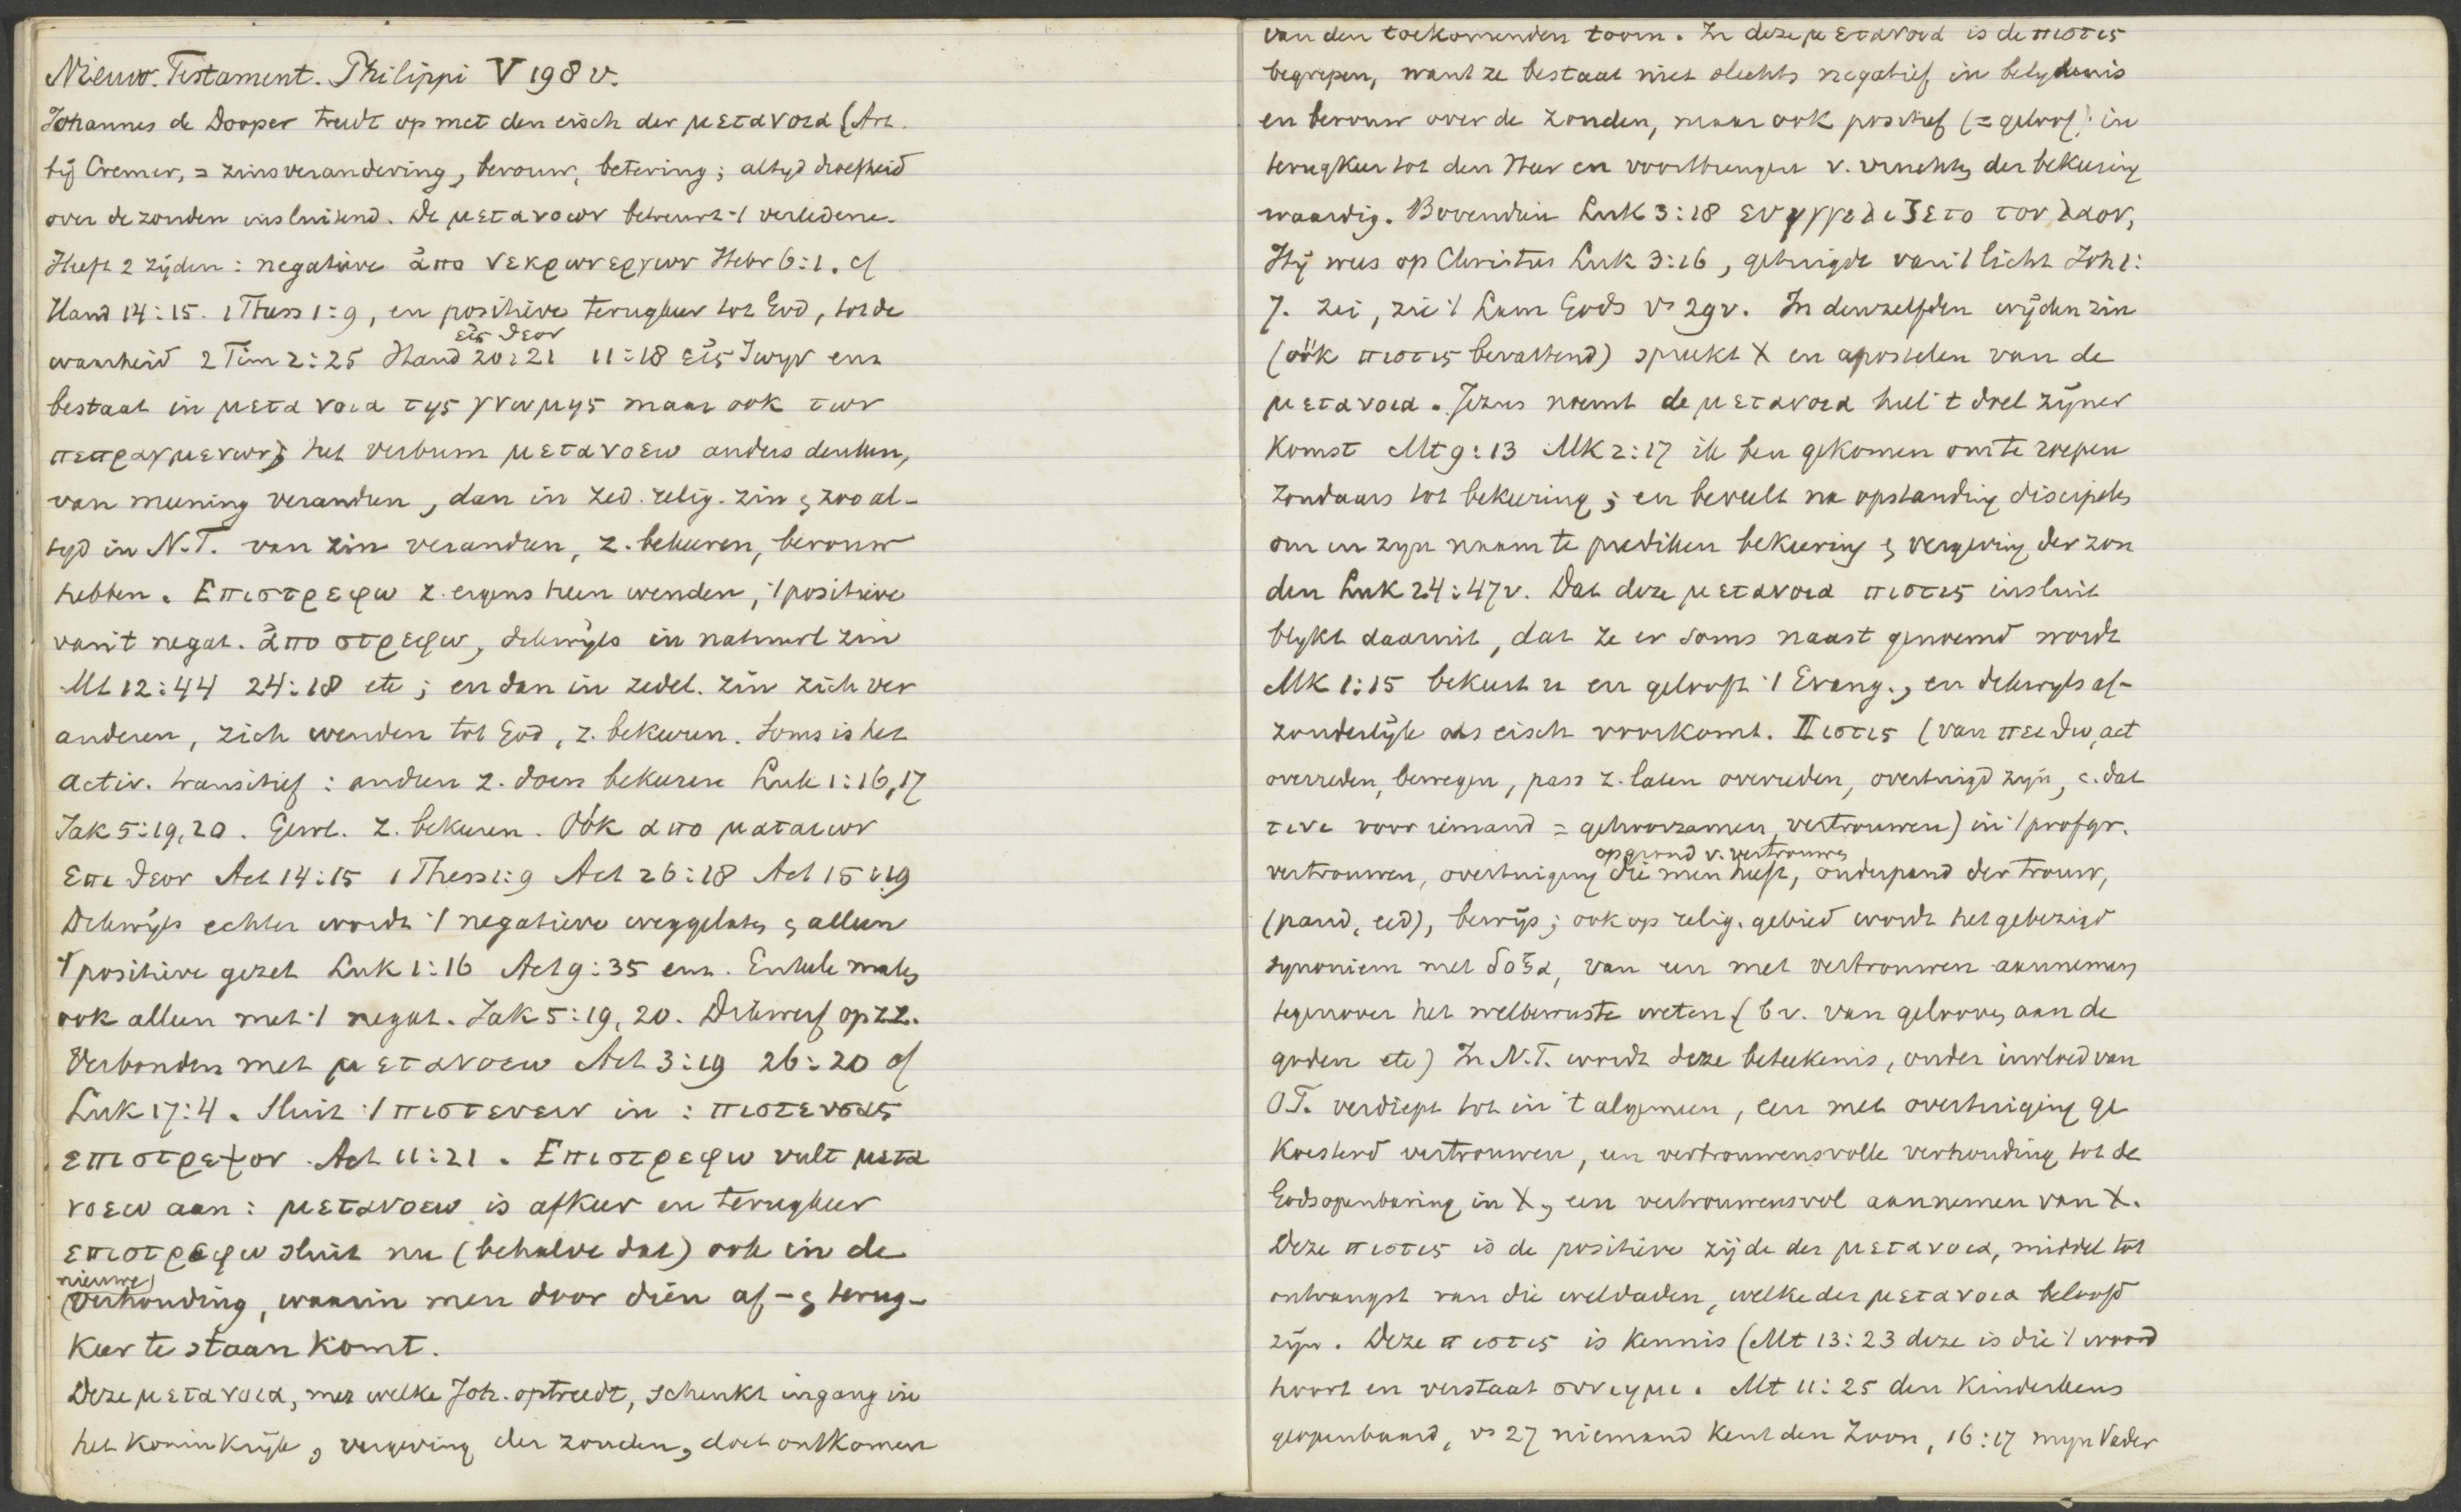 Nieuw. Testament. Philippi V 198 v.
Johannes de Dooper treedt op met den eisch der μετανοια (Art.
bij Cremer, = zinsverandering, berouw, betering; altyd droefheid
over de zonden insluitend. De μετανοων betreurt 't verledene.
Heeft 2 zijden: negatieve ἀπο νεκρων εργων Hebr 6:1. cf
Hand 14:15. 1 Thess 1:9, en positieve terugkeer tot God, tot de
εἰς θεον
waarheid 2 Tim 2:25 Hand 20:21 11:18 εἰς ζωην enz
bestaat in μετανοια της γνωμης maar ook των
πεπραγμενων; het verbum μετανοεω anders denken,
van meening veranderen, dan in zed. relig. zin & zoo al-
tyd in N.T. van zin veranderen, z. bekeeren, berouw
hebben. Επιστρεφω z. ergens heen wenden, 't positieve
van 't negat. ἀποστρεφω, dikwijls in natuurl zin
Mt 12:44 24:18 etc; en dan in zedel. zin zich ver
anderen, zich wenden tot God, z. bekeeren. Soms is het
activ. transitief: anderen z. doen bekeeren Luk 1:16,17
Jak 5:19,20. Gewl. z. bekeeren. Oók απο ματαιων
επι θεον Act 14:15 1 Thess 1:9 Act 26:18 Act 15:19
Dikwijls echter wordt 't negatieve weggelaten & alleen
't positieve gezet Luk 1:16 Act 9:35 enz. Enkele malen
ook alleen met 't negat. Jak 5:19,20. Dikwerf op zz.
Verbonden met μετανοεω Act 3:19 26:20 cf
Luk 17:4. Sluit 't πιστευειν in: πιστευσας
επιστρεψον Act 11:21. Επιστρεφω vult μετα
νοεω aan: μετανοεω is afkeer en terugkeer
επιστρεφω sluit nu (behalve dat) ook in de
nieuwe
verhouding, waarin men door dien af- & terug-
keer te staan komt.
Deze μετανοια, met welke Joh. optreedt, schenkt ingang in
het koninkrijk, vergeving der zonden, doet ontkomen
van den toekomenden toorn. In deze μετανοια is de πιστις
begrepen, want ze bestaat niet slechts negatief in belydenis
en berouw over de zonden, maar ook positief (= geloof) in
terugkeer tot den Heer en voortbrengen v. vruchten der bekeering
waardig. Bovendien Luk 3:18 ευηγγελιζετο τον λαον,
Hij wees op Christus Luk 3:16, getuigde van 't licht Joh 1:
7. zei, zie 't Lam Gods vs 29v. In denzelfden wijden zin
(oók πιστις bevattend) spreekt X en apostelen van de
μετανοια. Jezus noemt de μετανοια heel 't doel zijner
komst Mt 9:13 Mk 2:17 ik ben gekomen om te roepen
zondaars tot bekeering; en beveelt na opstanding discipelen
om in zyn naam te prediken bekeering & vergeving der zon
den Luk 24:47v. Dat deze μετανοια πιστις insluit
blykt daaruit, dat ze er soms naast genoemd wordt
Mk 1:15 bekeert u en gelooft 't Evang., en dikwyls af-
zonderlijk als eisch voorkomt. Πιστις (van πειθω, act
overreden, bewegen, pass z. laten overreden, overtuigd zijn, c. dat
τινι voor iemand = gehoorzamen, vertrouwen) in 't profgr.
op grond v. vertrouwen
vertrouwen, overtuiging die men heeft, onderpand der trouw,
(pand, eed), bewijs; ook op relig. gebied wordt het gebezigd
synoniem met δοξα, van een met vertrouwen aannemen,
tegenover het welbewuste weten (bv. van gelooven aan de
goden etc) In N.T. wordt deze beteekenis, onder invloed van
OT. verdiept tot in 't algemeen, een met overtuiging ge
koesterd vertrouwen, een vertrouwensvolle verhouding tot de
Godsopenbaring in X, een vertrouwensvol aannemen van X.
Deze πιστις is de positieve zijde der μετανοια, middel tot
ontvangst van die weldaden, welke der μετανοια beloofd
zijn. Deze πιστις is kennis (Mt 13:23 deze is die 't woord
hoort en verstaat συνιημι. Mt 11:25 den kinderkens
geopenbaard, vs 27 niemand kent den Zoon, 16:17 myn Vader